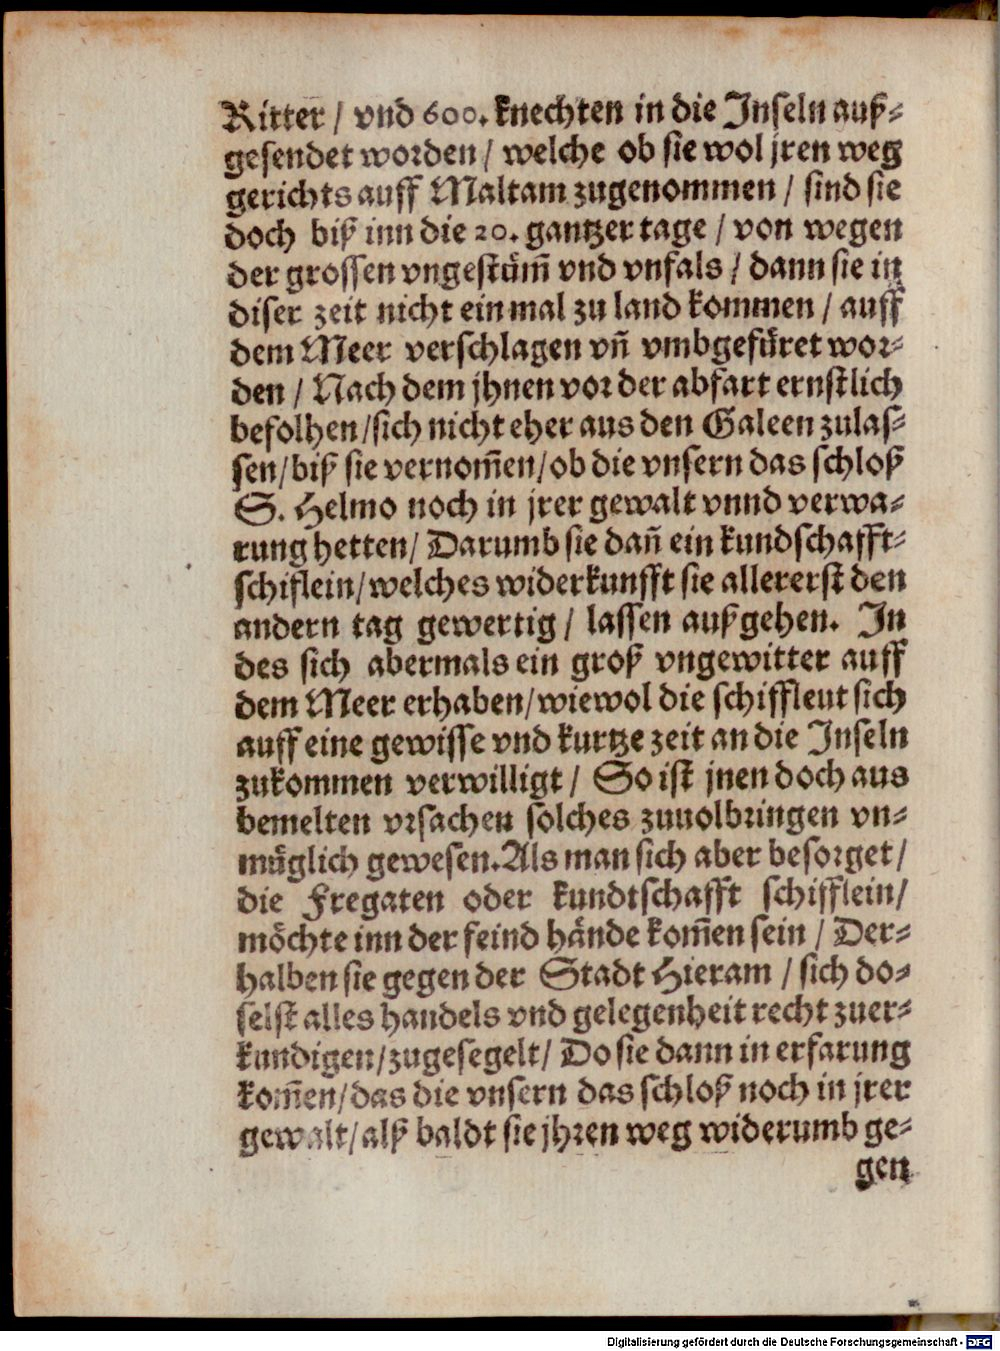 Ritter / vnd 600. knechten in die Inseln auß⸗
gesendet worden / welche ob sie wol jren weg
gerichts auff Maltam zugenommen / sind sie
doch biß inn die 20. gantzer tage / von wegen
der grossen vngestům̃ vnd vnfals / dann sie in
diser zeit nicht ein mal zu land kommen / auff
dem Meer verschlagen vñ vmbgefůret wor⸗
den / Nach dem jhnen vor der abfart ernstlich
befolhen / sich nicht eher aus den Galeen zulas⸗
sen / biß sie vernom̃en / ob die vnsern das schloß
S. Helmo noch in jrer gewalt vnnd verwa⸗
rung hetten / Darumb sie dañ ein kundschafft⸗
schiflein / welches widerkunfft sie allererst den
andern tag gewertig / lassen außgehen. In
des sich abermals ein groß vngewitter auff
dem Meer erhaben / wiewol die schiffleut sich
auff eine gewisse vnd kurtze zeit an die Inseln
zukommen verwilligt / So ist jnen doch aus
bemelten vrsachen solches zuuolbringen vn⸗
můglich gewesen. Als man sich aber besorget /
die Fregaten oder kundtschafft schifflein /
möchte inn der feind hände kom̃en sein / Der⸗
halben sie gegen der Stadt Hieram / sich do⸗
selst alles handels vnd gelegenheit recht zuer⸗
kundigen / zugesegelt / Do sie dann in erfarung
kom̃en / das die vnsern das schloß noch in jrer
gewalt / alß baldt sie jhren weg widerumb ge⸗
gen
Digitalisierung gefördert durch die Deutsche Forschungsgemeinschaft - DFG